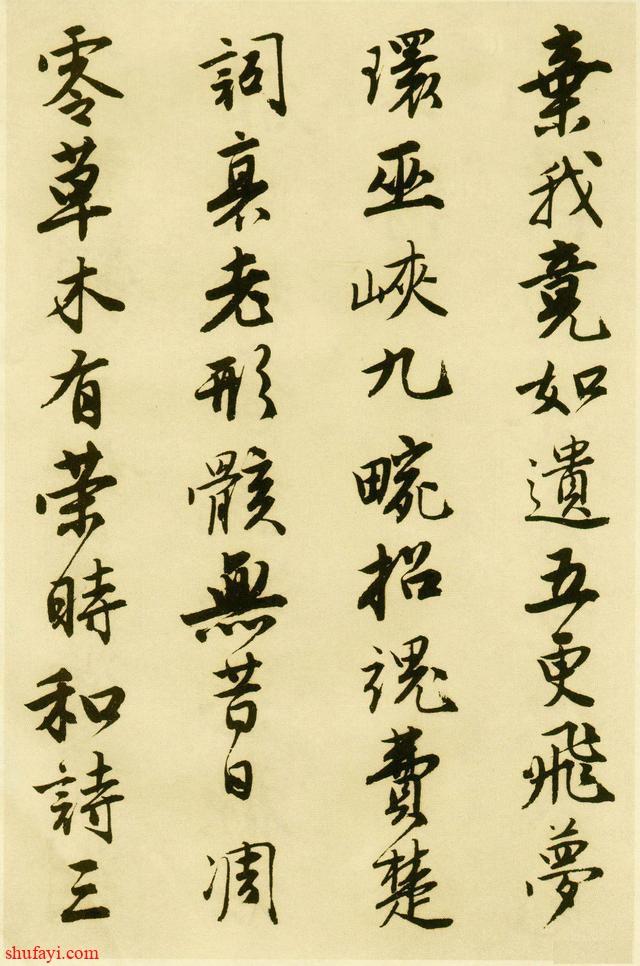 棄我竟如遺五更飛夢
環巫峽九畹招魂費楚
詞衰老形骸無昔日凋
零草木有榮時和詩三
shufayi.com